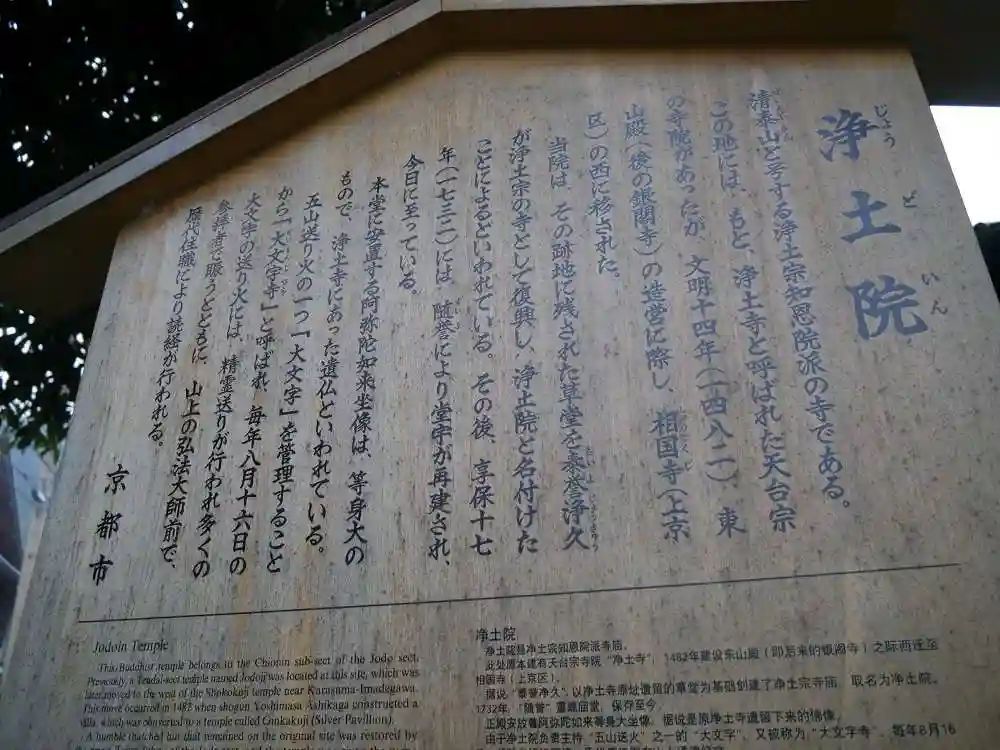 浄土院
じょうどいん
清泰山と号する浄土宗知恩院派の寺である。
この地には、もと、浄土寺と呼ばれた天台宗
の寺院があったが、文明十四年(一四八二)、東
山殿(後の銀閣寺)の造営に際し、相国寺(上京
区)の西に移された。
当院は、その跡地に残された草堂を泰誉浄久
が浄土宗の寺として復興し、浄土院と名付けた
ことによるといわれている。その後、享保十七
年(一七三二)には、随誉により堂宇が再建され、
今日に至っている。
本堂に安置する阿弥陀如来坐像は、等身大の
もので、浄土寺にあった遺仏といわれている。
五山送り火の一つ「大文字」を管理すること
から「大文字寺」と呼ばれ、毎年八月十六日の
大文字の送り火には、精霊送りが行われ多くの
参拝者で賑うとともに、山上の弘法大師前で、
歴代住職により読経が行われる。
京都市
Jodoin Temple
This Buddhist temple belongs to the Chionin sub-sect of the Jodo sect.
Previously, a Tendai-sect temple named Jodoji was located at this site, which was
later moved to the west of the Shokokuji temple near Karasuma-Imadegawa.
This move occurred in 1482 when shogun Yoshimasa Ashikaga constructed a
villa, which was converted to a temple called Ginkakuji (Silver Pavilion).
A humble thatched hut that remained on the original site was restored by
净土院
净土院是净土宗知恩院派寺庙。
此处原本建有天台宗寺院“净土寺”，1482年建设东山殿（即后来的银阁寺）之际西迁至
相国寺（上京区）。
据说，“泰誉净久”以净土寺原址遗留的草堂为基础创建了净土宗寺庙，取名为净土院。
1732年，“随誉”重建庙堂，保存至今。
正殿安放着阿弥陀如来等身大坐像，据说是原净土寺遗留下来的佛像。
由于净土院负责主持“五山送火”之一的“大文字”，又被称为“大文字寺”，每年8月16